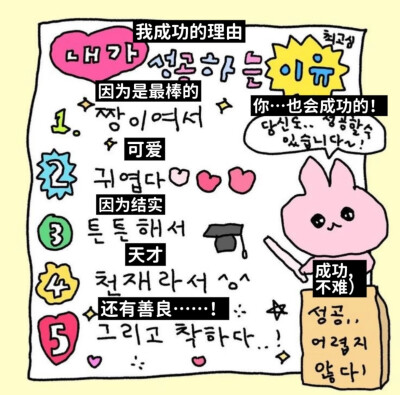 我成功的理由
최고심
내가 성공하는 이유
因为是最棒的
1. 짱이여서
你…也会成功的!
당신도.. 성공할수
있습니다~!
可爱
2 귀엽다
因为结实
3 튼튼해서
天才
4 천재라서 ^o^
还有善良……!
5 그리고 착하다..!
成功,
不难)
성공..
어렵지
않다!